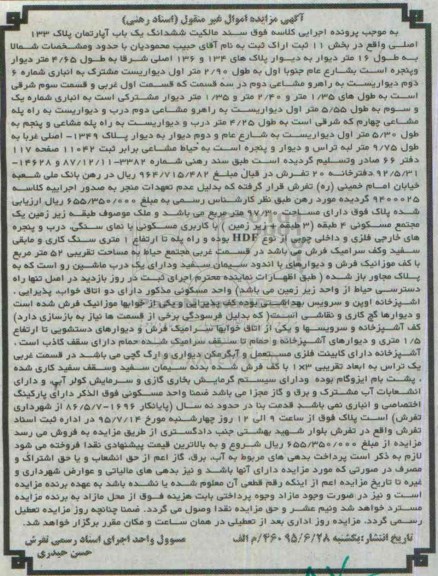 آگهی مزایده اموال غیر منقول (اسناد رهنی)
به موجب پرونده اجرایی کلاسه فوق سند مالکیت ششدانگ یک باب آپارتمان پلاک ۱۳۳
اصلی واقع در بخش ۱۱ ثبت اراک ثبت به نام آقای حبیب محمودیان با حدود ومشخصات شمالا
به طول ۱۶ متر دیوار به دیوار پلاک های ۱۳۴ و ۱۳۶ اصلی شرقا به طول ۴/۶۵ متر دیوار
وپنجره است بشارع عام جنوبا اول به طول ۲/۹۰ متر اول دیواریست مشترک به انباری شماره ۶
دوم دیواریست به راهرو مشاعی دوم در سه قسمت که قسمت اول غربی و قسمت سوم شرقی
است به طول های ۱/۳۵ متر و ۲/۴۰ متر و ۱/۳۵ متر دیوار مشترکی است به انباری شماره یک
و سوم به طول ۵/۵۵ متر اول دیواریست به راهرو مشاعی دوم درب و دیواریست به راه پله
مشاعی چهارم که شرقی است به طول ۴/۲۵ متر درب و دیواریست به راه پله مشاعی و پنجم به
طول ۵/۳۰ متر اول دیواریست به شارع عام و دوم دیوار به دیوار پلاک ۱۳۴۹- اصلی غربا به
طول ۹/۷۵ متر لبه تراس و دیوار و پنجره است به حیاط مشاعی برابر ثبت ۱۱۰۴۲ صفحه ۱۱۷
دفتر ۶۶ صادر وتسلیم گردیده است طبق سند رهنی شماره ۳۳۸۲-۸۷/۱۲/۱۱ و ۱۴۶۲۸-
۹۲/۵/۳۱ دفترخانه ۲۰ تفرش در قبال مبلغ ۹۶۴/۷۱۵/۴۸۲ ریال در رهن بانک ملی شعبه
خیابان امام خمینی (ره) تفرش قرار گرفته که بدلیل عدم تعهدات منجر به صدور اجراییه کلاسه
۹۴۰۰۰۲۵ گردیده مورد رهن طبق نظر کارشناس رسمی به مبلغ ۶۵۵/۳۵۰/۰۰۰ ریال ارزیابی
شده پلاک فوق دارای مساحت ۹۷/۳۰ متر مربع می باشد و ملک موصوف طبقه زیر زمین یک
مجتمع مسکونی ۴ طبقه (۳ طبقه + زیر زمین) با کاربری مسکونی با نمای سنگی، درب و پنجره
های خارجی فلزی و داخلی چوبی از نوع HDF بوده و راه پله تا ارتفاع ۱ متری سنگ کاری و مابقی
سفید وکف سرامیک فرش می باشد در قسمت غربی مجتمع حیاط به مساحت تقریبی ۵۲ متر مربع
با کف موزائیک فرش و دیوارهای با اندود سیمان سفید ودارای یک درب ماشین رو است که به
پلاک مجاور باز شده (طبق اظهارات نماینده محترم اجرای ثبت در روز بازدید در اصل تنها راه
دسترسی حیاط از واحد زیر زمین می باشد) واحد مسکونی مذکور دارای دو اتاق خواب، پذیرایی،
اشپزخانه اوپن و سرویس بهداشتی بوده کف پذیرایی و یکی از خوابها موزائیک فرش شده است
و دیوارها گچ کاری و نقاشی است( که بدلیل فرسودگی برخی از قسمت ها نیاز به بازسازی دارد)
کف آشپزخانه و سرویسها و یکی از اتاق خوابها سرامیک فرش و دیوارهای دستشویی تا ارتفاع
۱/۵ متری و دیوارهای آشپزخانه و حمام تا سقف سرامیک شده حمام دارای سقف کاذب است،
آشپزخانه دارای کابینت فلزی مستعمل و آبگرمکن دیواری و ارگ گچی می باشد در قسمت غربی
یک تراس به ابعاد تقریبی ۳×۱ با کف فرش شده بدنه سیمان سفید وسقف سفید کاری شده
، پشت بام ایزوگام بوده ودارای سیستم گرمایش بخاری گازی و سرمایش کولر آبی، و دارای
انشعابات آب مشترک و برق و گاز مجزا می باشد ضمنا واحد مسکونی فوق الذکر دارای پارکینگ
اختصاصی و انباری نمی باشد قدمت بنا در حدود نه سال (پایانکار ۱۶۹۶-۸۶/۵/۷ از شهرداری
تفرش) است پلاک فوق از ساعت ۹ الی ۱۲ روز چهارشنبه مورخ ۹۵/۷/۱۴ در اداره ثبت اسناد
تفرش واقع در تفرش بلوار شهید بهشتی جنب دادگستری از طریق مزایده به فروش می رسد
مزایده از مبلغ ۶۵۵/۳۵۰/۰۰۰ ریال شروع و به بالاترین قیمت پیشنهادی نقدا فروخته می شود
لازم به ذکر است پرداخت بدهی های مربوط به آب، برق، گاز اعم از حق انشعاب و یا حق اشتراک و
مصرف در صورتی که مورد مزایده دارای آنها باشد و نیز بدهی های مالیاتی و عوارض شهرداری و
غیره تا تاریخ مزایده اعم از اینکه رقم قطعی آن معلوم شده یا نشده باشد به عهده برنده مزایده
است و نیز در صورت وجود مازاد وجوه پرداختی بابت هزینه فوق از محل مازاد به برنده مزایده
مسترد خواهد شد ونیم عشر و حق مزایده نقدا وصول می گردد. ضمنا چنانچه روز مزایده تعطیل
رسمی گردد، مزایده روز اداری بعد از تعطیلی در همان ساعت و مکان مقرر برگزار خواهد شد.
تاریخ انتشار:یکشنبه ۹۵/۶/۲۸ ۴۶۰/م الف
مسوول واحد اجرای اسناد رسمی تفرش
حسن حیدری